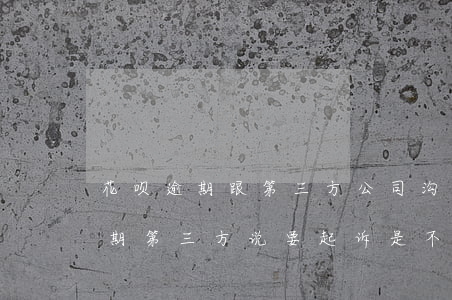 花呗逾期跟第三方公司沟
期第三方说要起诉是不